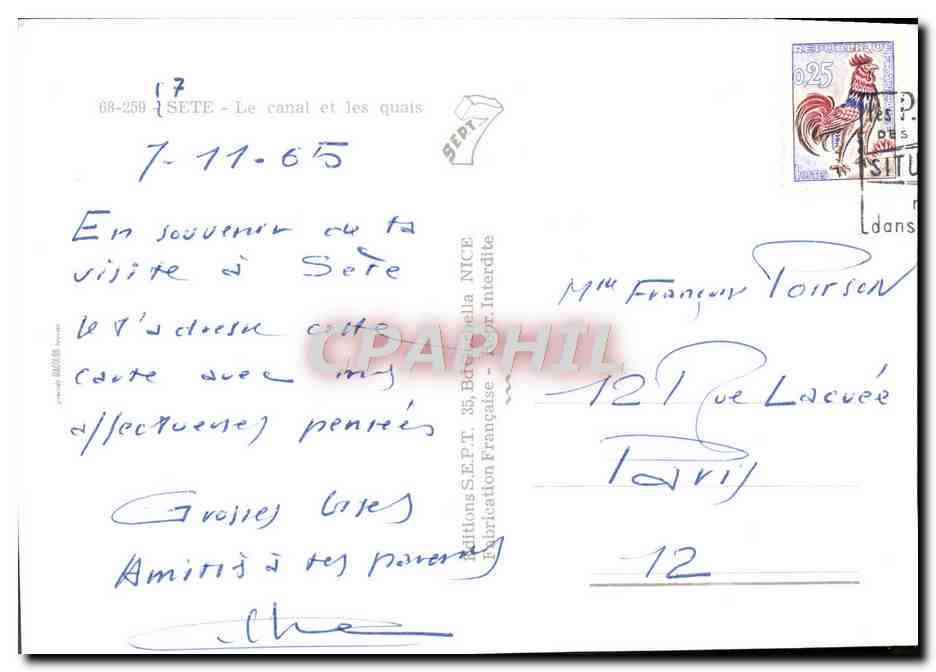 68-259 SETE - Le canal et les quais
7-11-65
En souvenir de ta
visite à Sète
je t'adresse cette
carte avec mes
affectueuses pensées
Grosses bises
Amitiés à tes parents
SEPT
Editions S.E.P.T. 35, Bd NICE
Fabrication Française - Repr. Interdite
CPAPHIL
REPUBLIQUE FRANCAISE
0,25
POSTES
les P.
DES
SITU
dans
Mlle François Poirson
12 Rue Lacuée
Paris
12